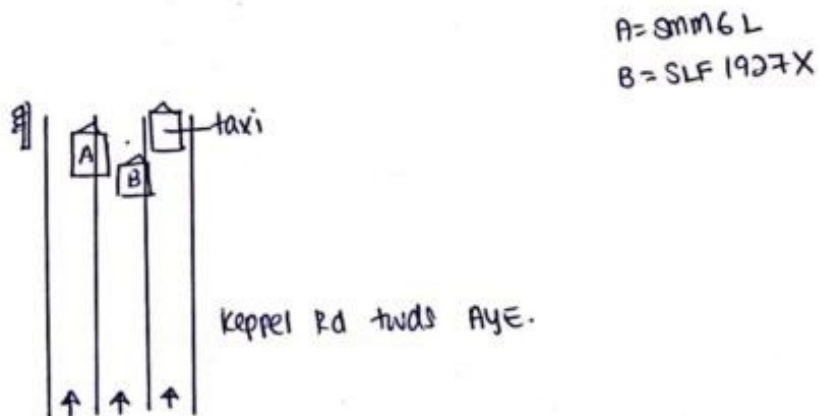 A= SMM6L
B= SLF 1927X
taxi
A
B
Keppel Rd twds AYE.